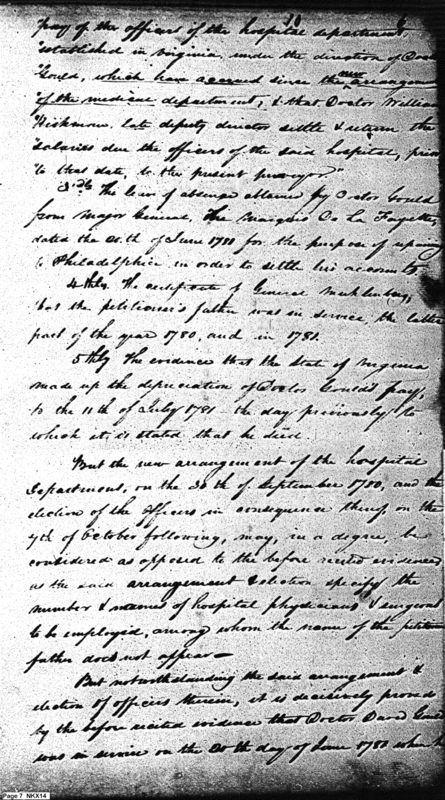 pay of the officers of the hospital department,
"established in Virginia under the direction of Doctor
"Gould, which have accrued since the new arrangem
"of the medical department, & that Doctor William
"Rickman late deputy director settle & return the
"salaries due the officers of the said hospital, prior
"to that date, to the present purveyor."
3dly The leave of absence obtained by Doctor Gould
from Major General, the Marquis De La Fayette,
dated the 20th of June 1781 for the purpose of repairing
to Philadelphia in order to settle his accounts
4thly. The certificate of General Muhlenberg,
that the petitioner's father was in service, the latter
part of the year 1780, and in 1781.
5thly The evidence that the State of Virginia
made up the depreciation of Doctor Gould's pay,
to the 11th of July 1781 the day previously to
which it is stated that he died.
But the new arrangement of the hospital
Department, on the 30th of September 1780, and the
election of the officers in consequence thereof on the
7th of October following, may, in a degree, be
considered as opposed to the before recited evidence
as the said arrangement & election specify the
number & names of hospital physicians & surgeons
to be employed, among whom the name of the petition
father does not appear—
But notwithstanding the said arrangement &
election of officers therein, it is decisively proved
by the before recited evidence that Doctor David Gould
was in service on the 20th day of June 1781 when h
Page 7 NKX14